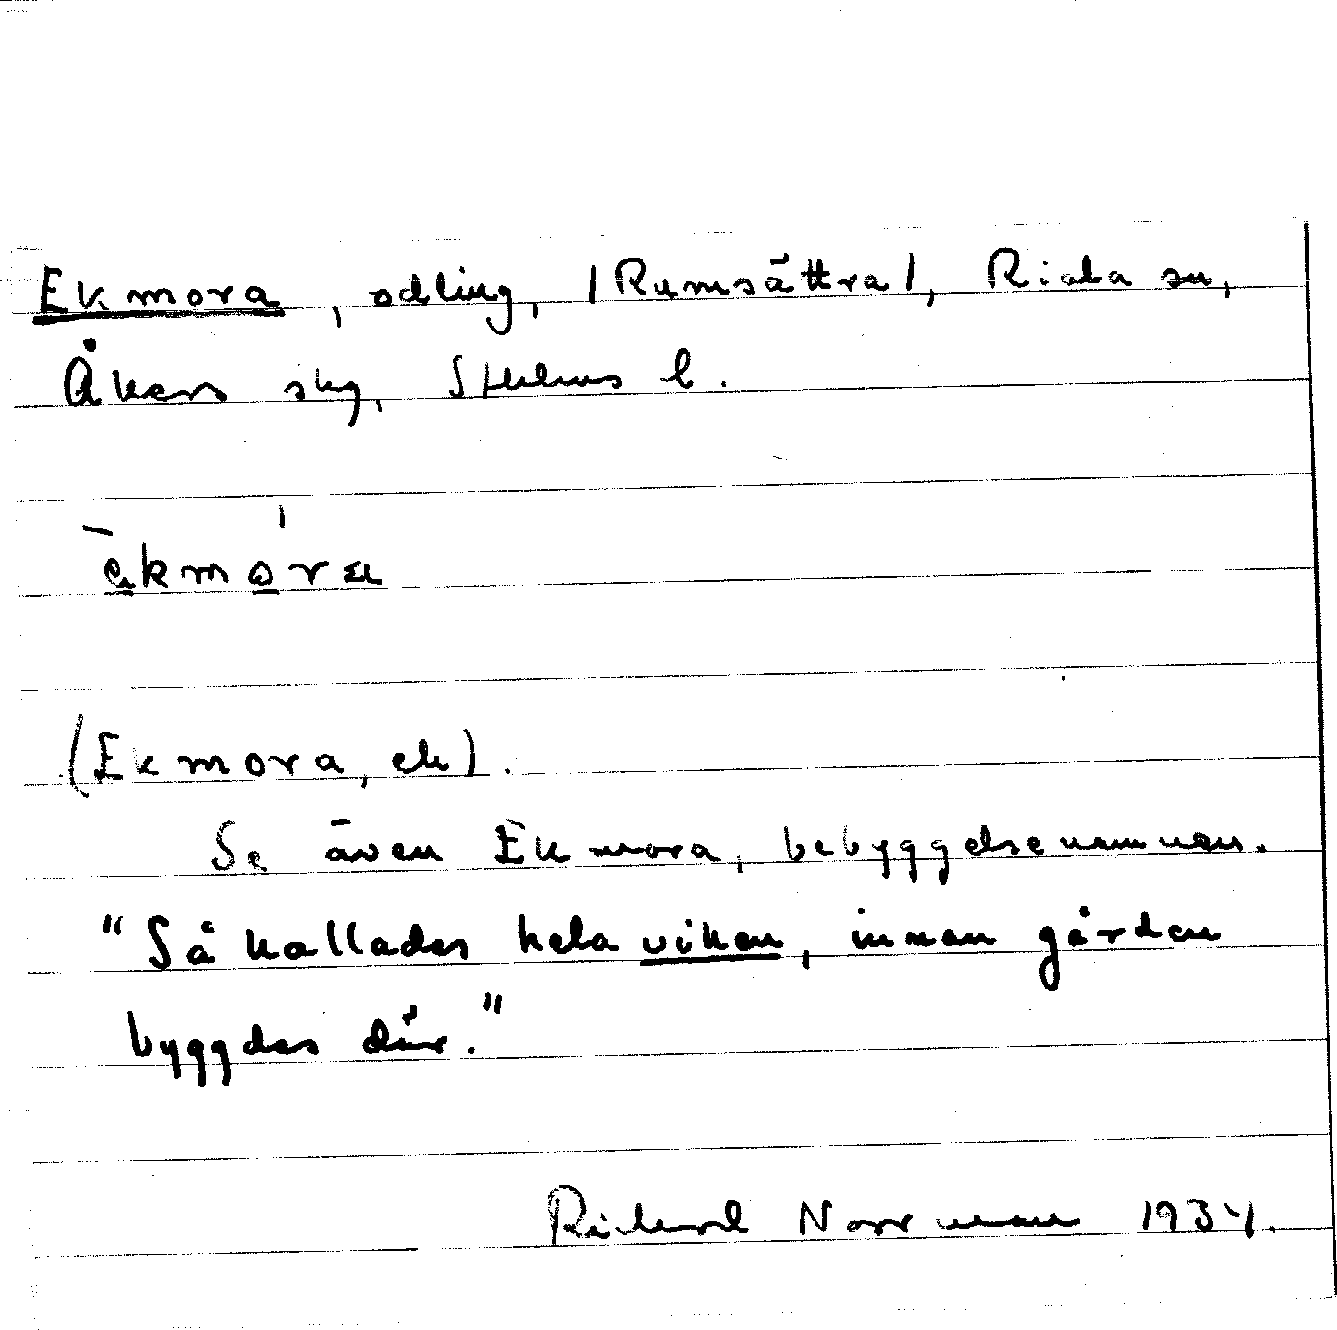 Ekmora, odling, /Rumsättra/, Riala sn,
Åkers skg, Sthlms l.
ekmora
(Ekmora, ek).
Se även Ekmora, bebyggelsenamnen.
"Så kallades hela viken, innan gården
byggdes där."
Richard Norrman 1934.